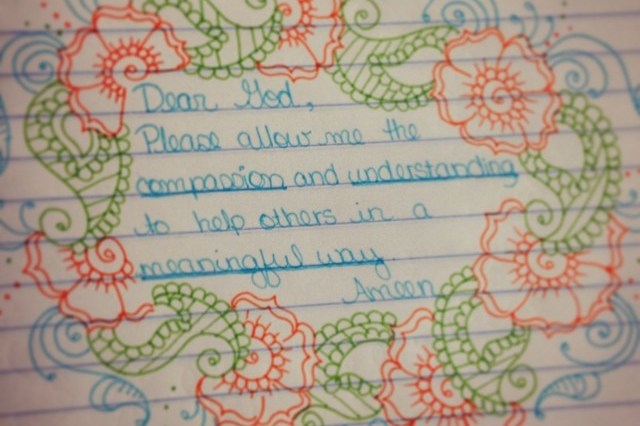 Dear God,
Please allow me the
compassion and understanding
to help others in a
meaningful way
Ameen